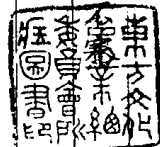 東方文化
事業總
委員會所
藏圖書印